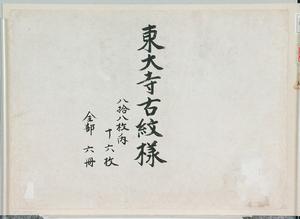 東大寺古紋様
八拾八枚内
十六枚
全部 六冊